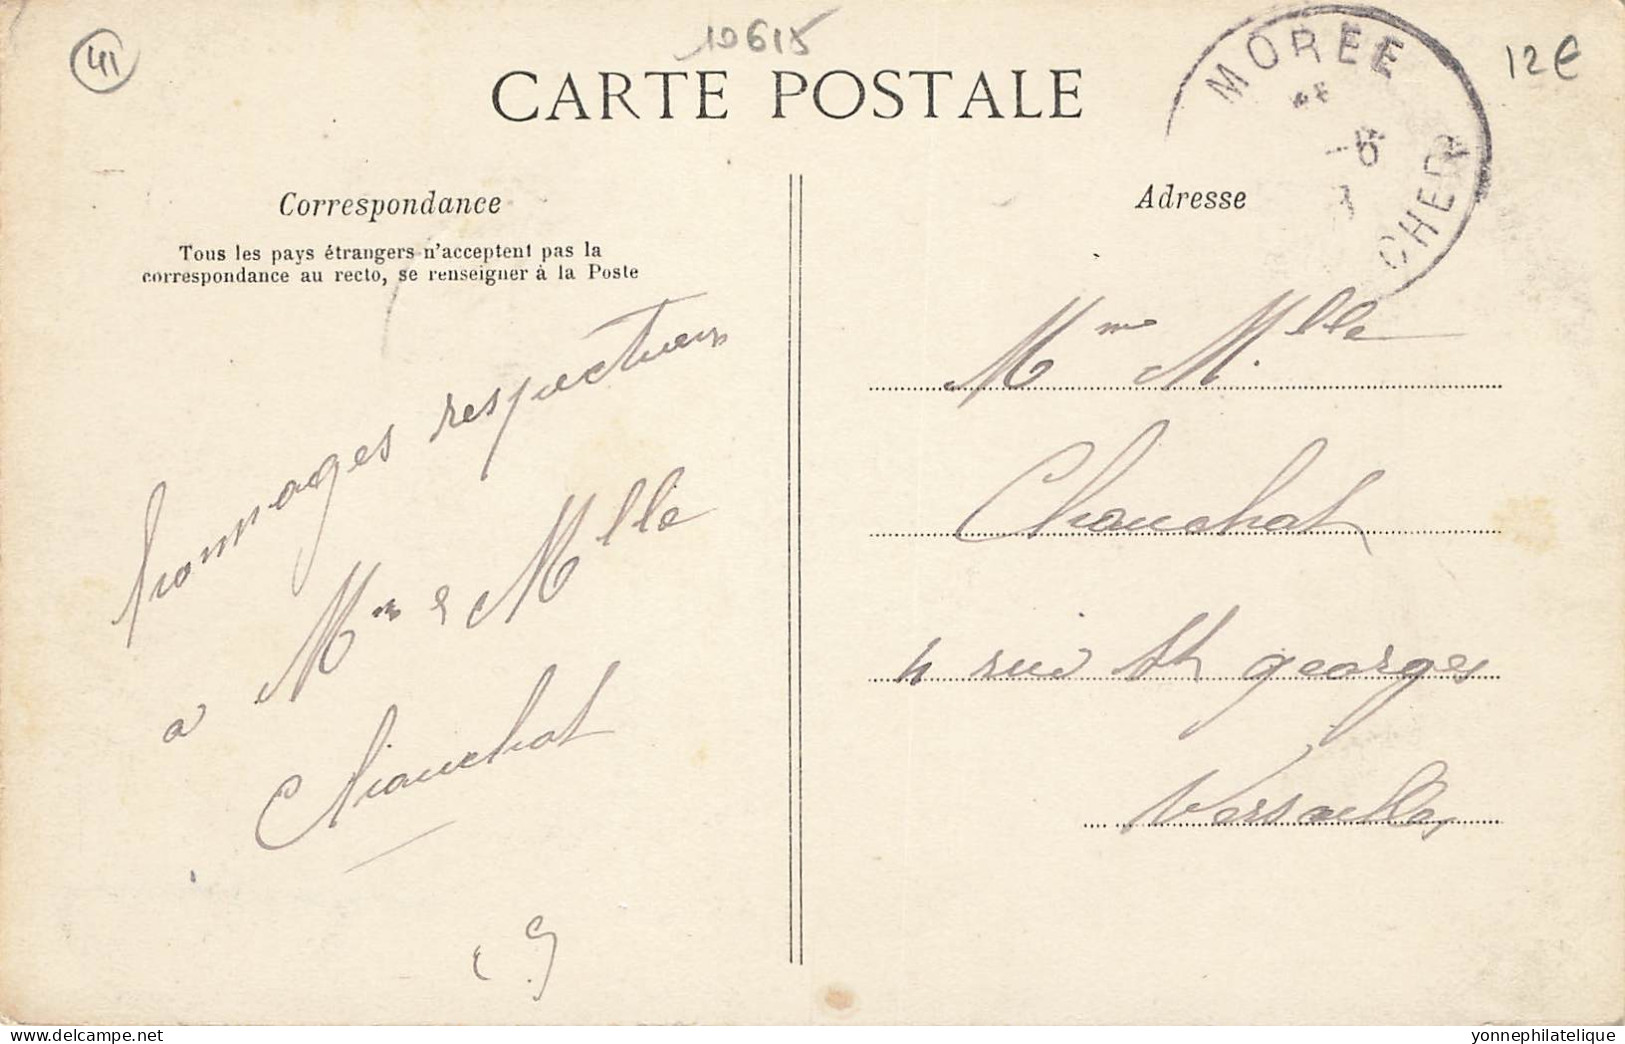 41
10615
12€
CARTE POSTALE
MORÉE
CHER
Correspondance
Adresse
Tous les pays étrangers n'acceptent pas la
correspondance au recto, se renseigner à la Poste
hommages respectueux
a Mme & Mlle
Chauchat
Mme Mlle
Chauchat
4 rue St georges
Versailles
yonnephilatelique